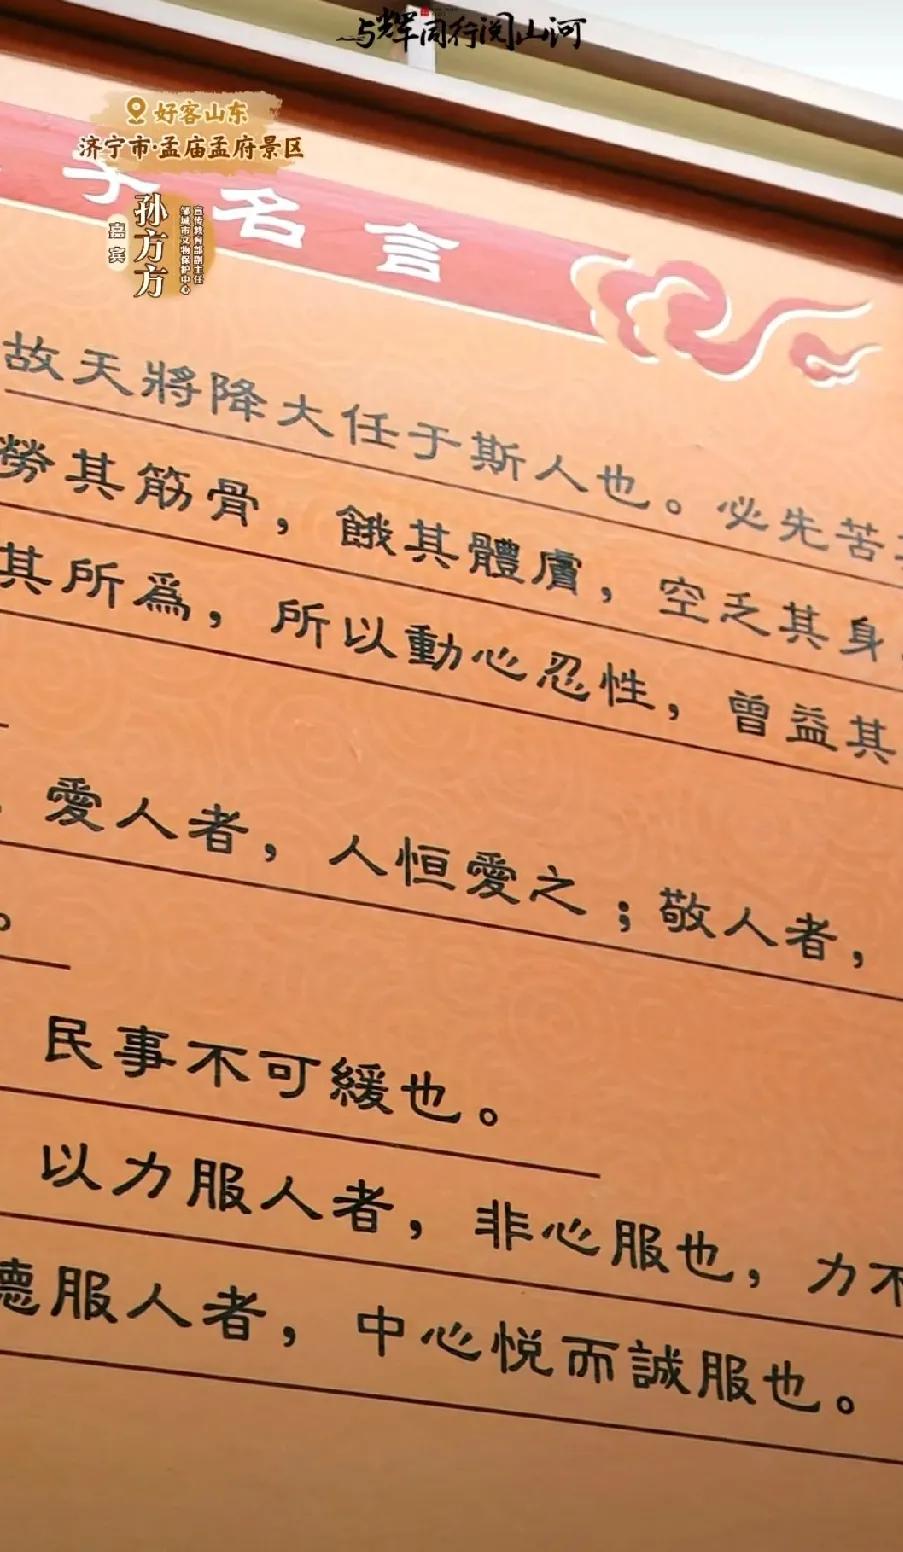 与辉同行阅山河
好客山东
济宁市·孟庙孟府景区
嘉宾
孙方方
邹城市文物保护中心
宣传教育部副主任
子名言
故天將降大任于斯人也。必先苦
勞其筋骨，餓其體膚，空乏其身
其所爲，所以動心忍性，曾益其
愛人者，人恒愛之；敬人者，
。
民事不可緩也。
以力服人者，非心服也，力不
德服人者，中心悦而誠服也。